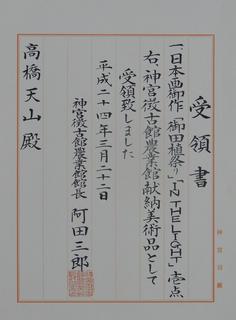 受領書
一、日本画御作「御田植祭り」「IN THE LIGHT」壱点
右、神宮徴古館農業館献納美術品として
受領致しました
平成二十四年三月二十二日
神宮徴古館農業館館長 阿田三郎
高橋天山殿